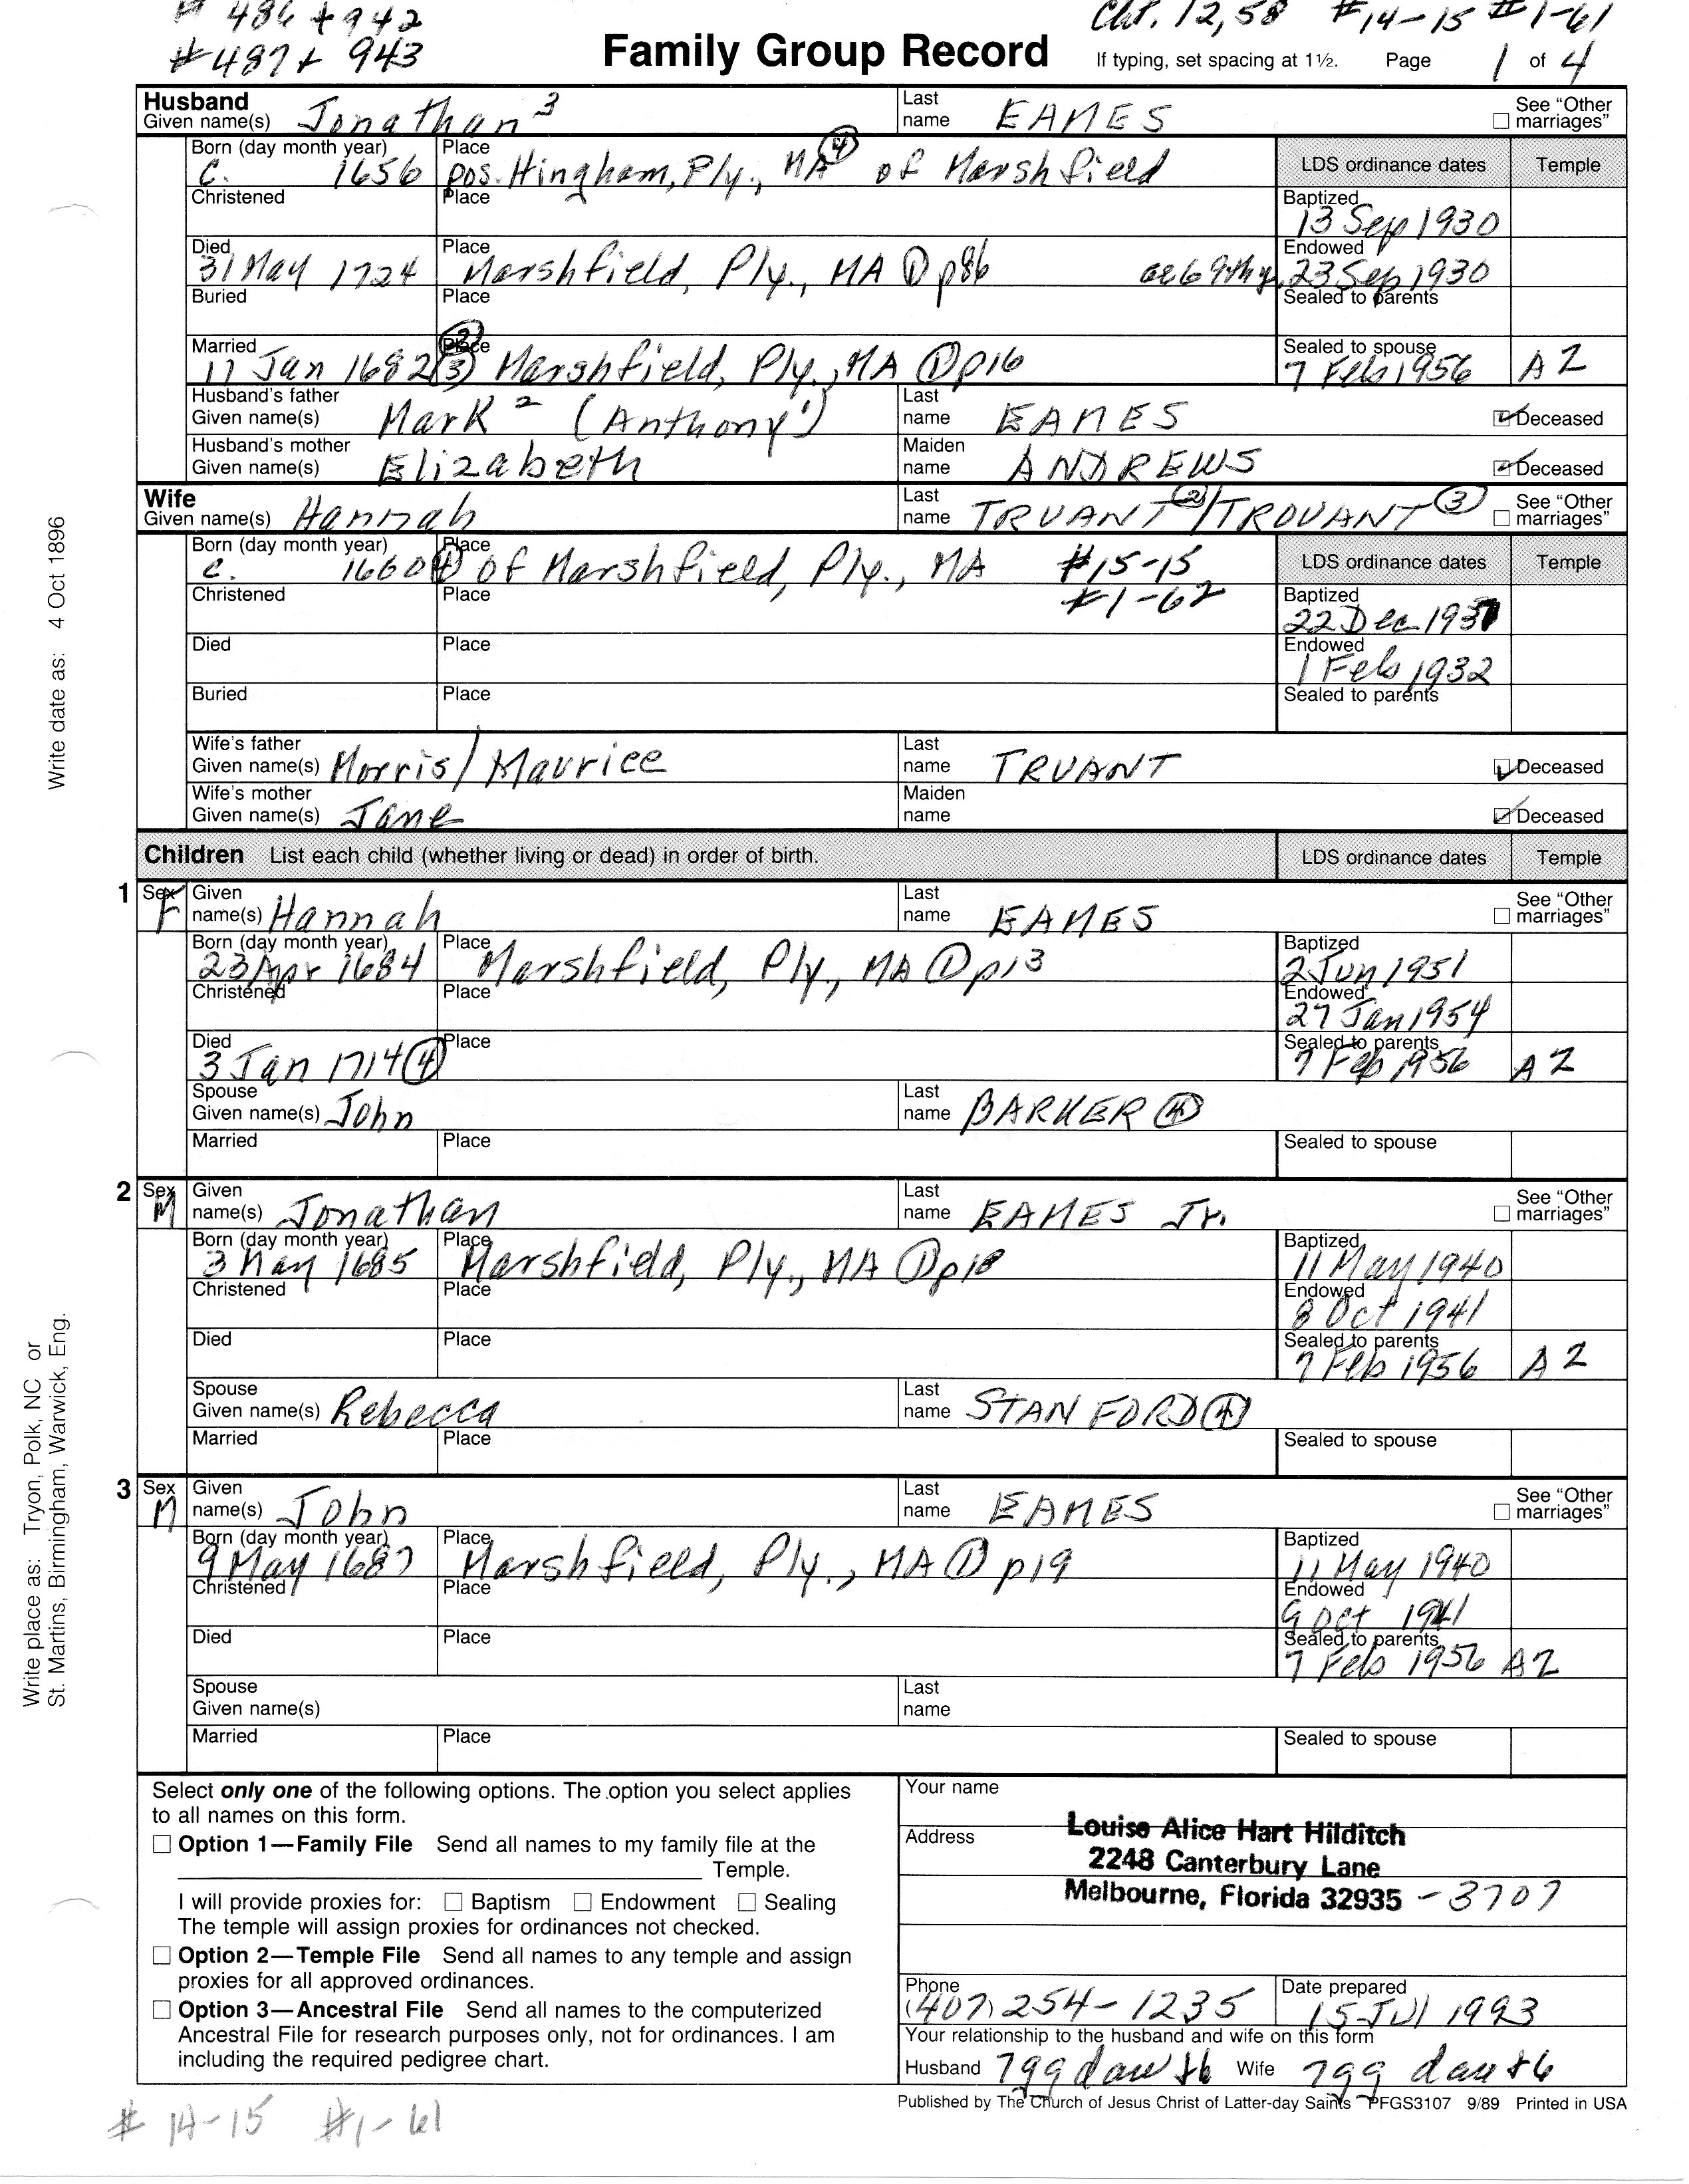 # 486 + 942
Cht. 12,58 #14-15 #1-61
# 487 + 943
Family Group Record
If typing, set spacing at 1½. Page 1 of 4
Husband
Given name(s) Jonathan ³
Last name EAMES
See "Other marriages"
Born (day month year) c. 1656
Place pos. Hingham, Ply., MA ④ of Marshfield
LDS ordinance dates Temple
Christened
Place
Baptized 13 Sep 1930
Died 31 May 1724
Place Marshfield, Ply., MA ① p86
Endowed 23 Sep 1930
Buried
Place
Sealed to parents
Married 11 Jan 1682 ③
② Place Marshfield, Ply., MA ① p16
Sealed to spouse 7 Feb 1956 AZ
Husband's father
Given name(s) Mark ² (Anthony ¹)
Last name EAMES
Deceased
Husband's mother
Given name(s) Elizabeth
Maiden name ANDREWS
Deceased
Wife
Given name(s) Hannah
Last name TRUANT ②/TROUANT ③
See "Other marriages"
Born (day month year) c. 1660 ④
Place of Marshfield, Ply., MA #15-15
LDS ordinance dates Temple
Christened
Place #1-62
Baptized 22 Dec 1931
Died
Place
Endowed 1 Feb 1932
Buried
Place
Sealed to parents
Wife's father
Given name(s) Morris/Maurice
Last name TRUANT
Deceased
Wife's mother
Given name(s) Jane
Maiden name
Deceased
Children List each child (whether living or dead) in order of birth.
LDS ordinance dates Temple
1 Sex F Given name(s) Hannah
Last name EAMES
See "Other marriages"
Born (day month year) 23 Apr 1684
Place Marshfield, Ply., MA ① p13
Baptized 2 Jun 1951
Christened
Place
Endowed 27 Jan 1954
Died 3 Jan 1714 ④
Place
Sealed to parents 7 Feb 1956 AZ
Spouse
Given name(s) John
Last name BARKER ④
Married
Place
Sealed to spouse
2 Sex M Given name(s) Jonathan
Last name EAMES Jr.
See "Other marriages"
Born (day month year) 3 May 1685
Place Marshfield, Ply., MA ① p18
Baptized 11 May 1940
Christened
Place
Endowed 8 Oct 1941
Died
Place
Sealed to parents 7 Feb 1956 AZ
Spouse
Given name(s) Rebecca
Last name STANFORD ④
Married
Place
Sealed to spouse
3 Sex M Given name(s) John
Last name EAMES
See "Other marriages"
Born (day month year) 9 May 1687
Place Marshfield, Ply., MA ① p19
Baptized 11 May 1940
Christened
Place
Endowed 9 Oct 1941
Died
Place
Sealed to parents 7 Feb 1956 AZ
Spouse
Given name(s)
Last name
Married
Place
Sealed to spouse
Select only one of the following options. The option you select applies
to all names on this form.
Option 1—Family File Send all names to my family file at the
Temple.
I will provide proxies for: Baptism Endowment Sealing
The temple will assign proxies for ordinances not checked.
Option 2—Temple File Send all names to any temple and assign
proxies for all approved ordinances.
Option 3—Ancestral File Send all names to the computerized
Ancestral File for research purposes only, not for ordinances. I am
including the required pedigree chart.
Your name
Louise Alice Hart Hilditch
Address
2248 Canterbury Lane
Melbourne, Florida 32935 -3707
Phone (407) 254-1235
Date prepared 15 Jul 1993
Your relationship to the husband and wife on this form
Husband 7gg dau th6 Wife 7gg dau th6
Published by The Church of Jesus Christ of Latter-day Saints PFGS3107 9/89 Printed in USA
# 14-15 #1-61
Write date as: 4 Oct 1896
Write place as: Tryon, Polk, NC or
St. Martins, Birmingham, Warwick, Eng.